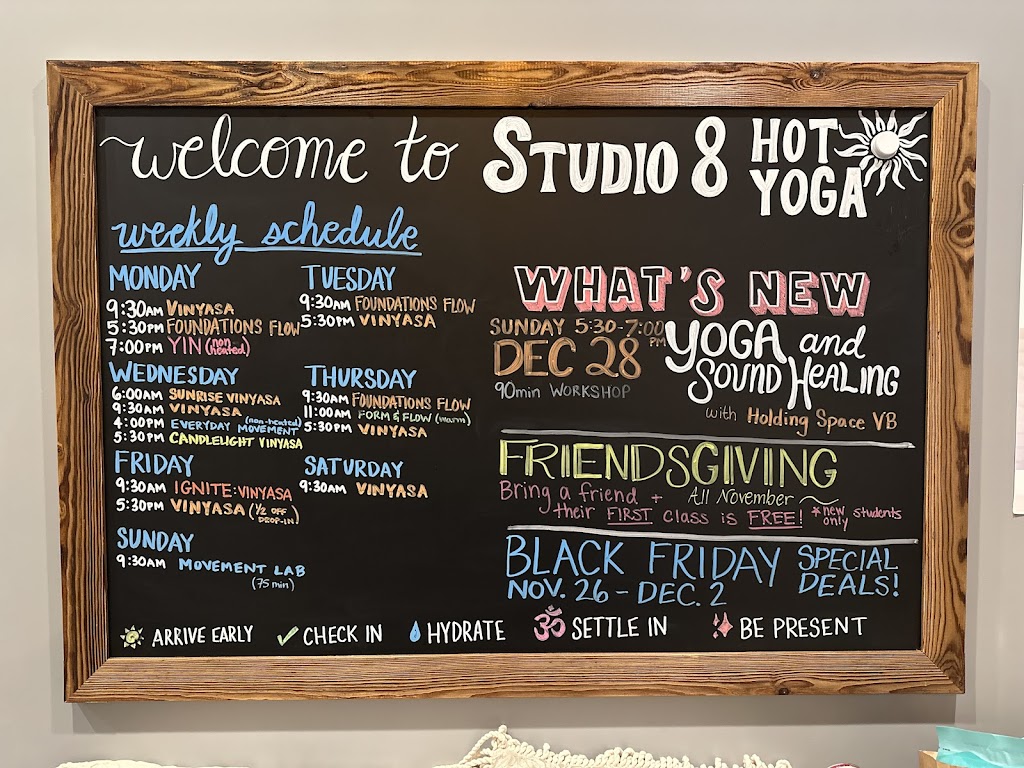 welcome to STUDIO 8 HOT YOGA
weekly schedule
MONDAY
9:30AM VINYASA
5:30PM FOUNDATIONS FLOW
7:00PM YIN (non-heated)
TUESDAY
9:30AM FOUNDATIONS FLOW
5:30PM VINYASA
WEDNESDAY
6:00AM SUNRISE VINYASA
9:30AM VINYASA
4:00PM EVERYDAY MOVEMENT (non-heated)
5:30PM CANDLELIGHT VINYASA
THURSDAY
9:30AM FOUNDATIONS FLOW
11:00AM FORM & FLOW (warm)
5:30PM VINYASA
FRIDAY
9:30AM IGNITE: VINYASA
5:30PM VINYASA (1/2 OFF DROP-IN)
SATURDAY
9:30AM VINYASA
SUNDAY
9:30AM MOVEMENT LAB
(75 min)
WHAT'S NEW
SUNDAY 5:30-7:00 PM
DEC 28
90min WORKSHOP
YOGA and
SOUND HEALING
with Holding Space VB
FRIENDSGIVING
Bring a friend + All November
their FIRST class is FREE! *new students only
BLACK FRIDAY SPECIAL
NOV. 26 - DEC. 2 DEALS!
ARRIVE EARLY ✓ CHECK IN HYDRATE ॐ SETTLE IN BE PRESENT